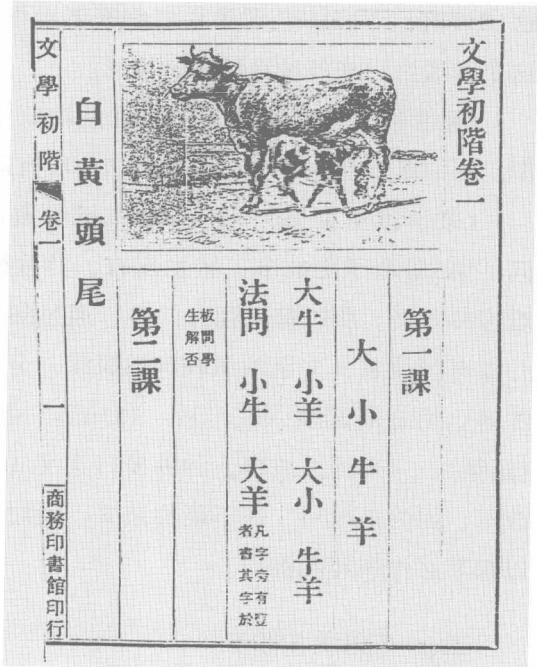 文學初階卷一
第一課
大 小 牛 羊
大牛 小羊 大小 牛羊
法問 小牛 大羊 凡字旁有豎
者書其字於
板問學
生解否
第二課
白 黃 頭 尾
文學初階 卷一 一 商務印書館印行